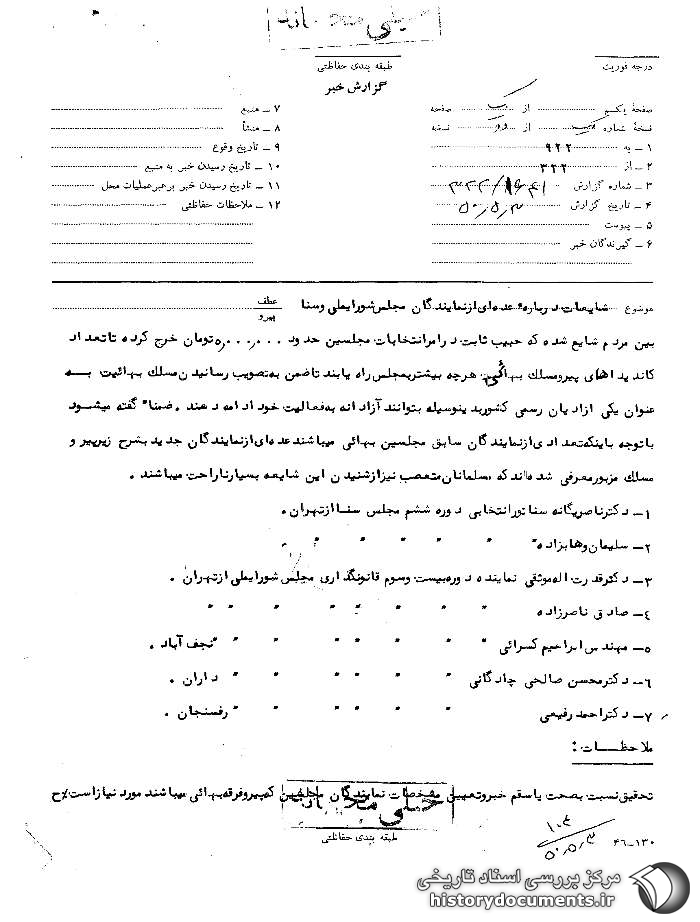 خیلی محرمانه
درجه فوریت
طبقه بندی حفاظتی
گزارش خبر
صفحهٔ یکم از یک صفحه
نسخهٔ شماره یک از دو نسخه
۱ ـ به ۹۲۲
۲ ـ از ۳۲۲
۳ ـ شماره گزارش
۴ ـ تاریخ گزارش ۵۰٫۵٫۳
۵ ـ پیوست
۶ ـ گیرندگان خبر
۷ ـ منبع
۸ ـ منشأ
۹ ـ تاریخ وقوع
۱۰ ـ تاریخ رسیدن خبر به منبع
۱۱ ـ تاریخ رسیدن خبر برهبر عملیات محل
۱۲ ـ ملاحظات حفاظتی
موضوع شایعات درباره عده‌ای از نمایندگان مجلس شورایملی و سنا
عطف
پیرو
بین مردم شایع شده که حبیب ثابت در امر انتخابات مجلسین حدود ۵٫۰۰۰٫۰۰۰ تومان خرج کرده تا تعداد
کاندیداهای پیرو مسلک بهائی هرچه بیشتر بمجلس راه یابند تا ضمن به تصویب رسانیدن مسلک بهائیت به
عنوان یکی از ادیان رسمی کشور بدینوسیله بتوانند آزادانه به فعالیت خود ادامه دهند . ضمنا" گفته میشود
با توجه باینکه تعدادی از نمایندگان سابق مجلسین بهائی میباشند عده‌ای از نمایندگان جدید بشرح زیر پیرو
مسلک مزبور معرفی شده‌اند که مسلمانان متعصب نیز از شنیدن این شایعه بسیار ناراحت میباشند .
۱ـ دکتر ناصر یگانه سناتور انتخابی دوره ششم مجلس سنا از تهران .
۲ـ سلیمان وهابزاده " " " " " " .
۳ـ دکتر قدرت اله موثقی نماینده دوره بیست وسوم قانونگذاری مجلس شورایملی از تهران .
۴ـ صادق ناصرزاده " " " " " " " "
۵ـ مهندس ابراهیم کسرائی " " " " " " " نجف آباد .
۶ـ دکتر محسن صالحی چادگانی " " " " " " " داران .
۷ـ دکتر احمد رفیعی " " " " " " " رفسنجان .
ملاحظات :
تحقیق نسبت بصحت یا سقم خبر و تعیین مشخصات نمایندگان مجلسین که پیرو فرقه بهائی میباشند مورد نیاز است
خیلی محرمانه
طبقه بندی حفاظتی
۴۶ـ۱۳۰
۵۰٫۵٫۳
مرکز بررسی اسناد تاریخی
historydocuments.ir